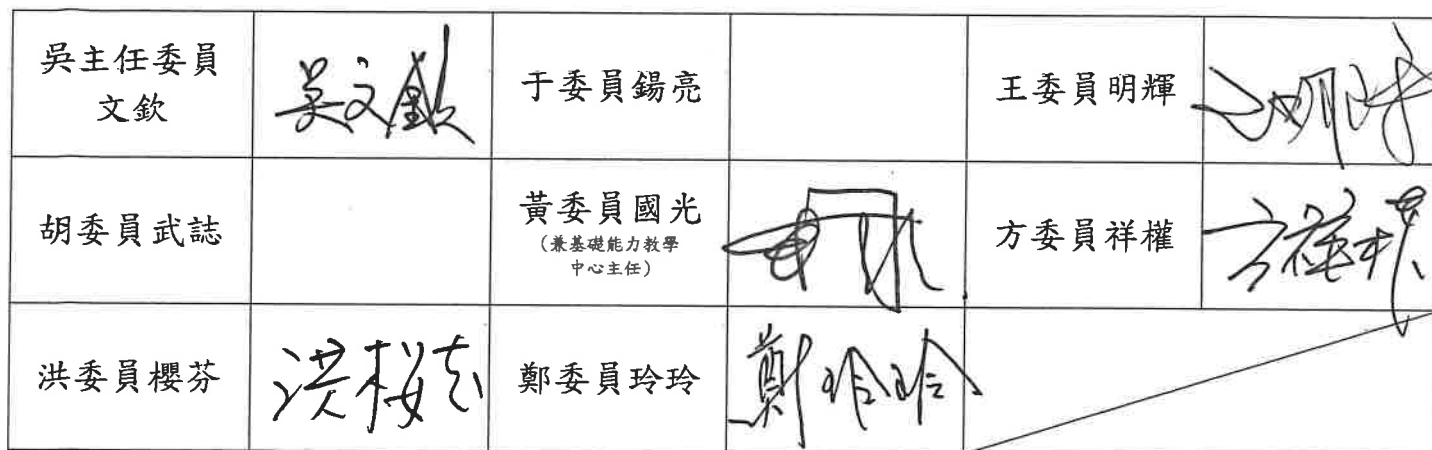 吳主任委員
文欽
吳文欽
于委員鍚亮
王委員明輝
王明輝
胡委員武誌
黃委員國光
（兼基礎能力教學
中心主任）
方委員祥權
方祥權
洪委員櫻芬
洪櫻芬
鄭委員玲玲
鄭玲玲